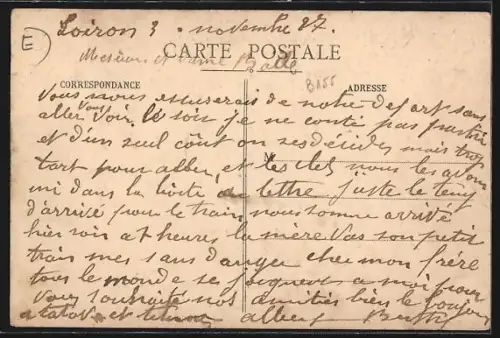 Loiron 3 novembre 27.
Mesieur et Dame Balle
CARTE POSTALE
B155
CORRESPONDANCE
ADRESSE
Vous nous escuserais de notre depart sans
aller Vous Voir. le soir je ne conté pas partir
et d'un seul coût on ses désides mais trop
tart pour aller, et les clés nous les avons
mi dans la boite a lettre juste le temp
d'arrivé pour le train nous somme arrivé
hier soir a 7 heures la mère Vas son petit
train mes sans danger chez mon frére
tous le monde se joigneret a moi pour
Vous souhaité nos amitiés bien le bonjour
a et Albert
E